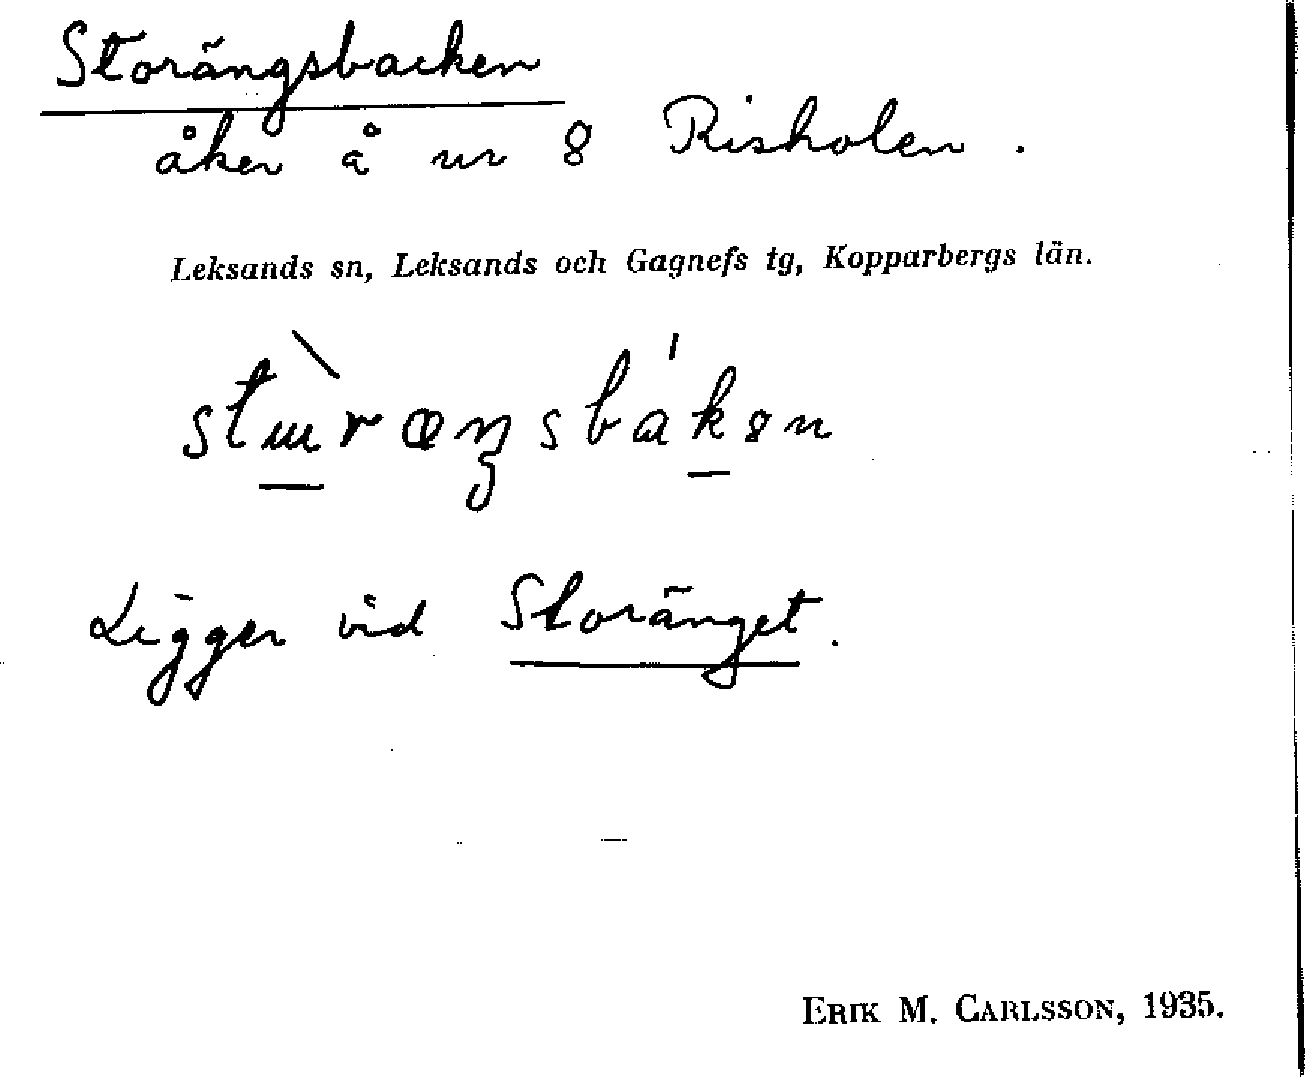 Storängsbacken
åker å nr 8 Risholen.
Leksands sn, Leksands och Gagnefs tg, Kopparbergs län.
Ligger vid Storänget.
ERIK M. CARLSSON, 1935.